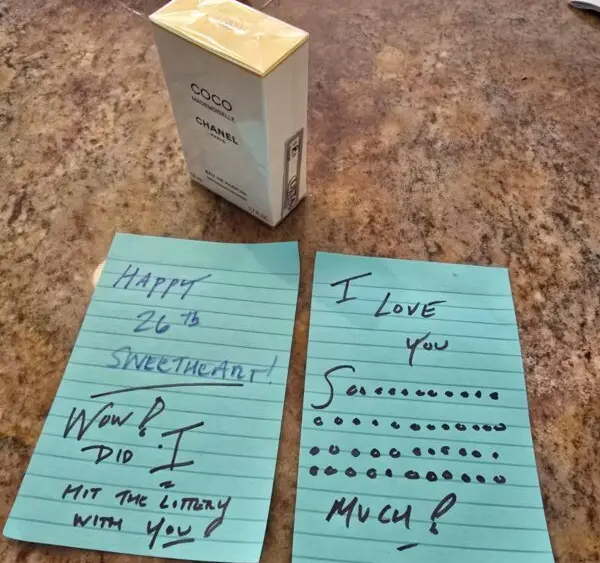 COCO
MADEMOISELLE
CHANEL
PARIS
EAU DE PARFUM
HAPPY
26th
SWEETHEART!
WOW!
DID I
HIT THE LOTTERY
WITH YOU!
I LOVE
YOU
Soooooooooooo
oooooooooooo
ooooooooooo
ooooooooooo
MUCH!